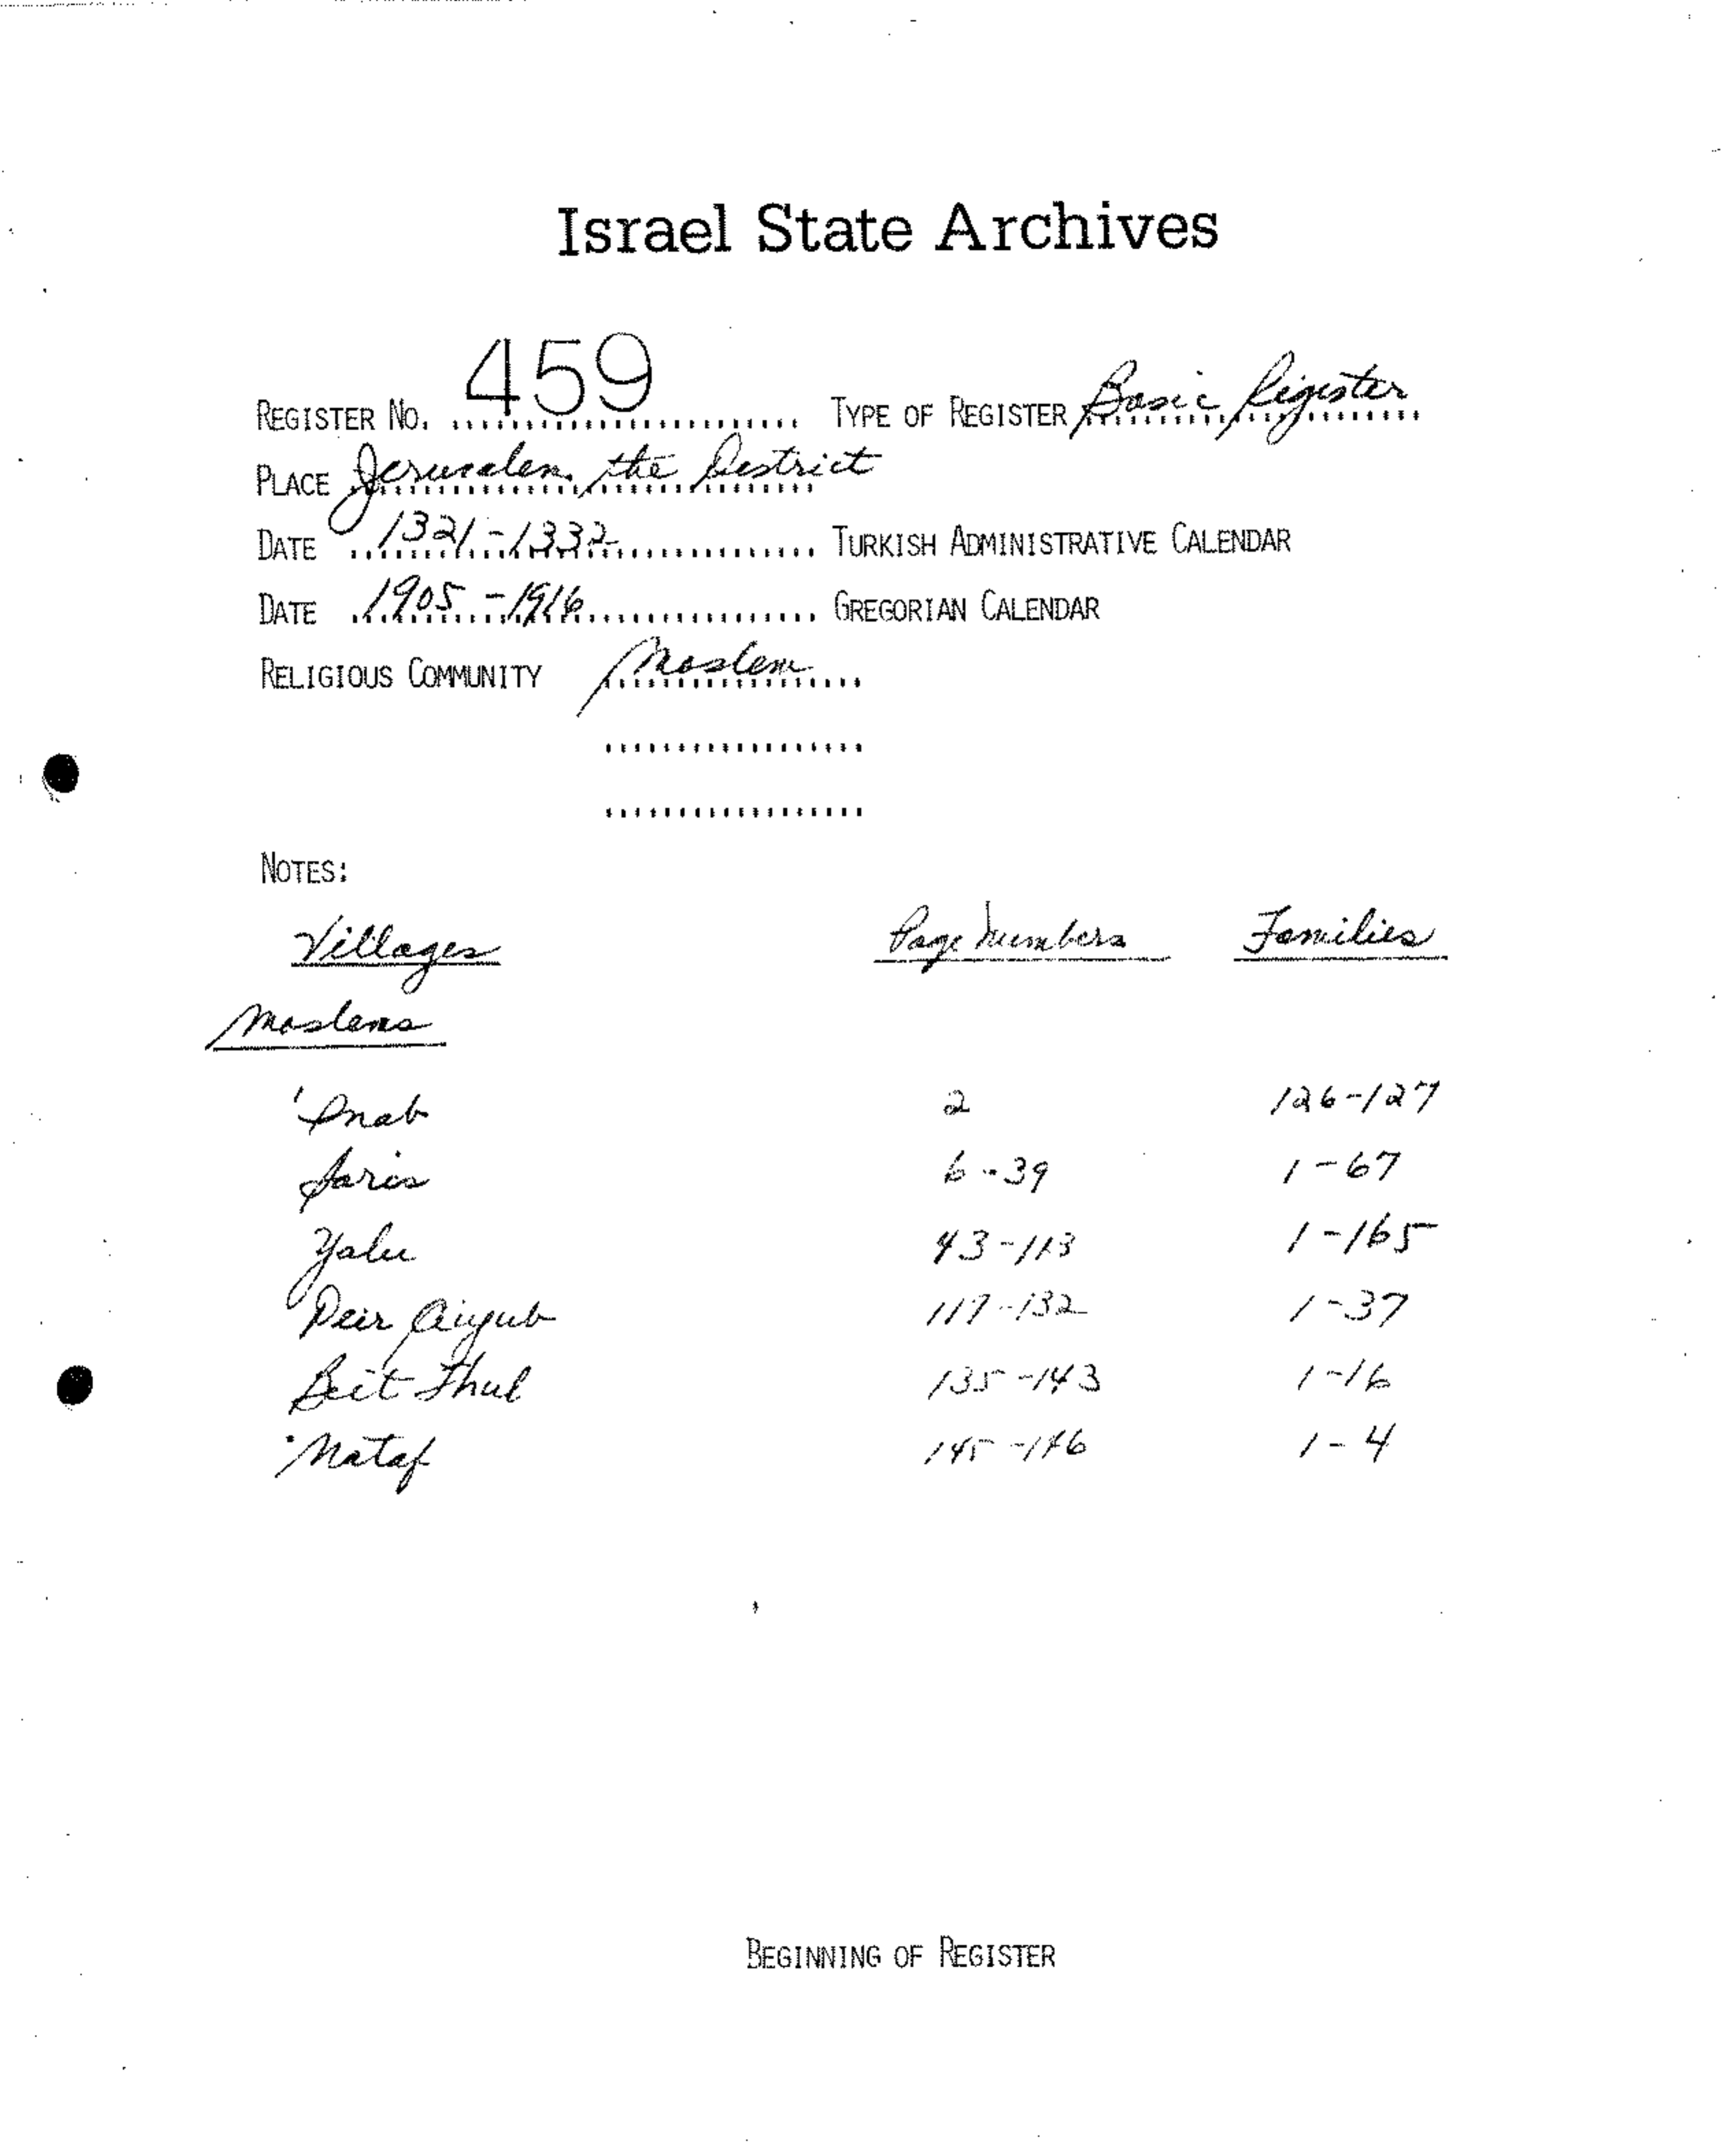 Israel State Archives
REGISTER NO. 459 TYPE OF REGISTER Basic Register
PLACE Jerusalem, the District
DATE 1321-1332 TURKISH ADMINISTRATIVE CALENDAR
DATE 1905-1916 GREGORIAN CALENDAR
RELIGIOUS COMMUNITY Moslem
NOTES:
Villages Page Numbers Families
Moslems
'Inab 2 126-127
Saris 6-39 1-67
Yalu 43-113 1-165
Deir Aiyub 117-132 1-37
Beit Thul 135-143 1-16
Nataf 145-146 1-4
BEGINNING OF REGISTER